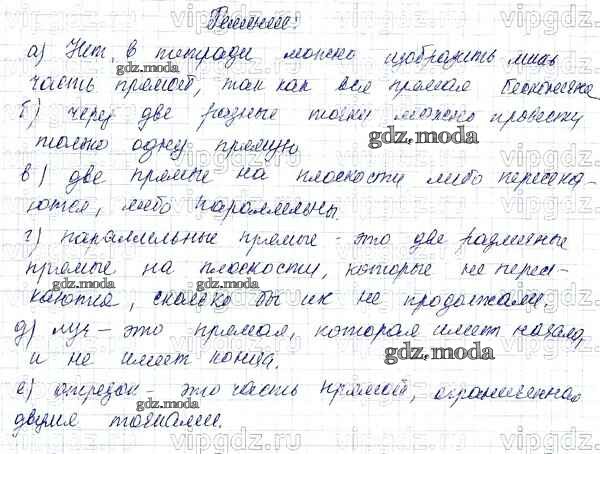 Решение:
а) Нет, в тетради можно изобразить лишь
часть прямой, так как вся прямая бесконечна
б) через две разные точки можно провести
только одну прямую
в) две прямые на плоскости либо пересека-
ются, либо параллельны.
г) параллельные прямые - это две различные
прямые на плоскости, которые не пересе-
каются, сколько бы их не продолжали.
д) луч - это прямая, которая имеет начало,
и не имеет конца.
е) отрезок - это часть прямой, ограниченная
двумя точками.
gdz.moda
gdz.moda
gdz.moda
gdz.moda
gdz.moda
gdz.moda
gdz.moda
vipgdz.ru